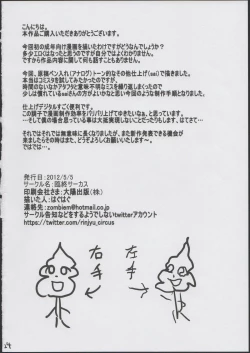 こんにちは。
本作品ご購入いただきありがとうございます。
今回初の成年向け漫画を描いたわけですがどうなんでしょうか？
多少エロくはなったと思うのですが自分ではよくわかりません。
ですから作品内容に関して何も語すこともありません。
今回、原稿ペン入れ（アナログ）トーン的なその他仕上げ（sai）で描きました。
本当はコミスタで仕上げたかったのですが、
時間のないなかアタフタと意味不明なミスを繰り返しましたので
少しは慣れているsaiさんの方がよいかなと思い今回のような製作手順となりました。
仕上げデジタルすごく便利です。
この調子で漫画制作効率をバリバリ上げてゆきたいなぁ、と思っています。
それではそれでは無意味に長くなりましたが、また新作発表できる機会が
来ましたらその時はまた、どうぞよろしくお願いいたします〜。
ではでは…。
発行日：2012/5/5
サークル名：臨終サーカス
印刷会社さま：大陽出版（株）
描いた人：はぐはぐ
連絡先：zombiem@hotmail.co.jp
サークル告知などをするようでしないtwitterアカウント
https://twitter.com/rinjyu_circus
右手
左手